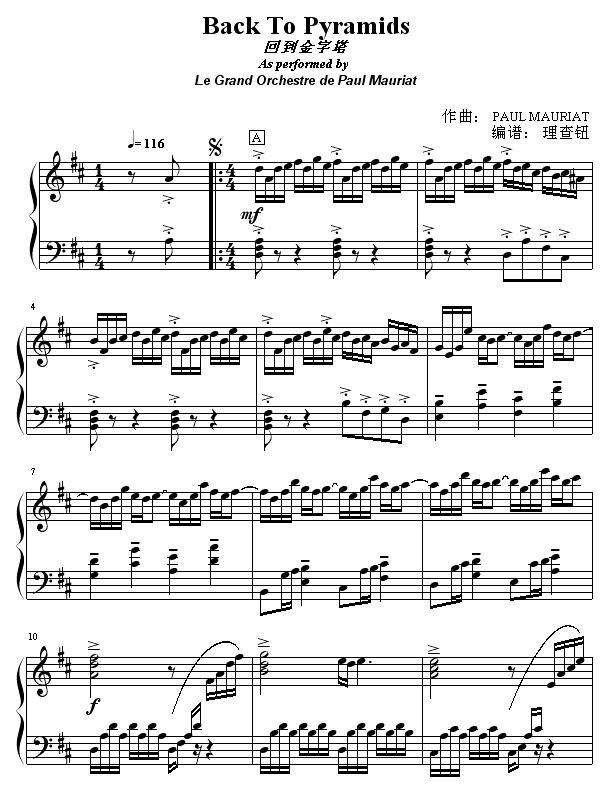 Back To Pyramids
回到金字塔
As performed by
Le Grand Orchestre de Paul Mauriat
作曲： PAUL MAURIAT
编谱： 理查钮
♩= 116
A
mf
4
7
10
f